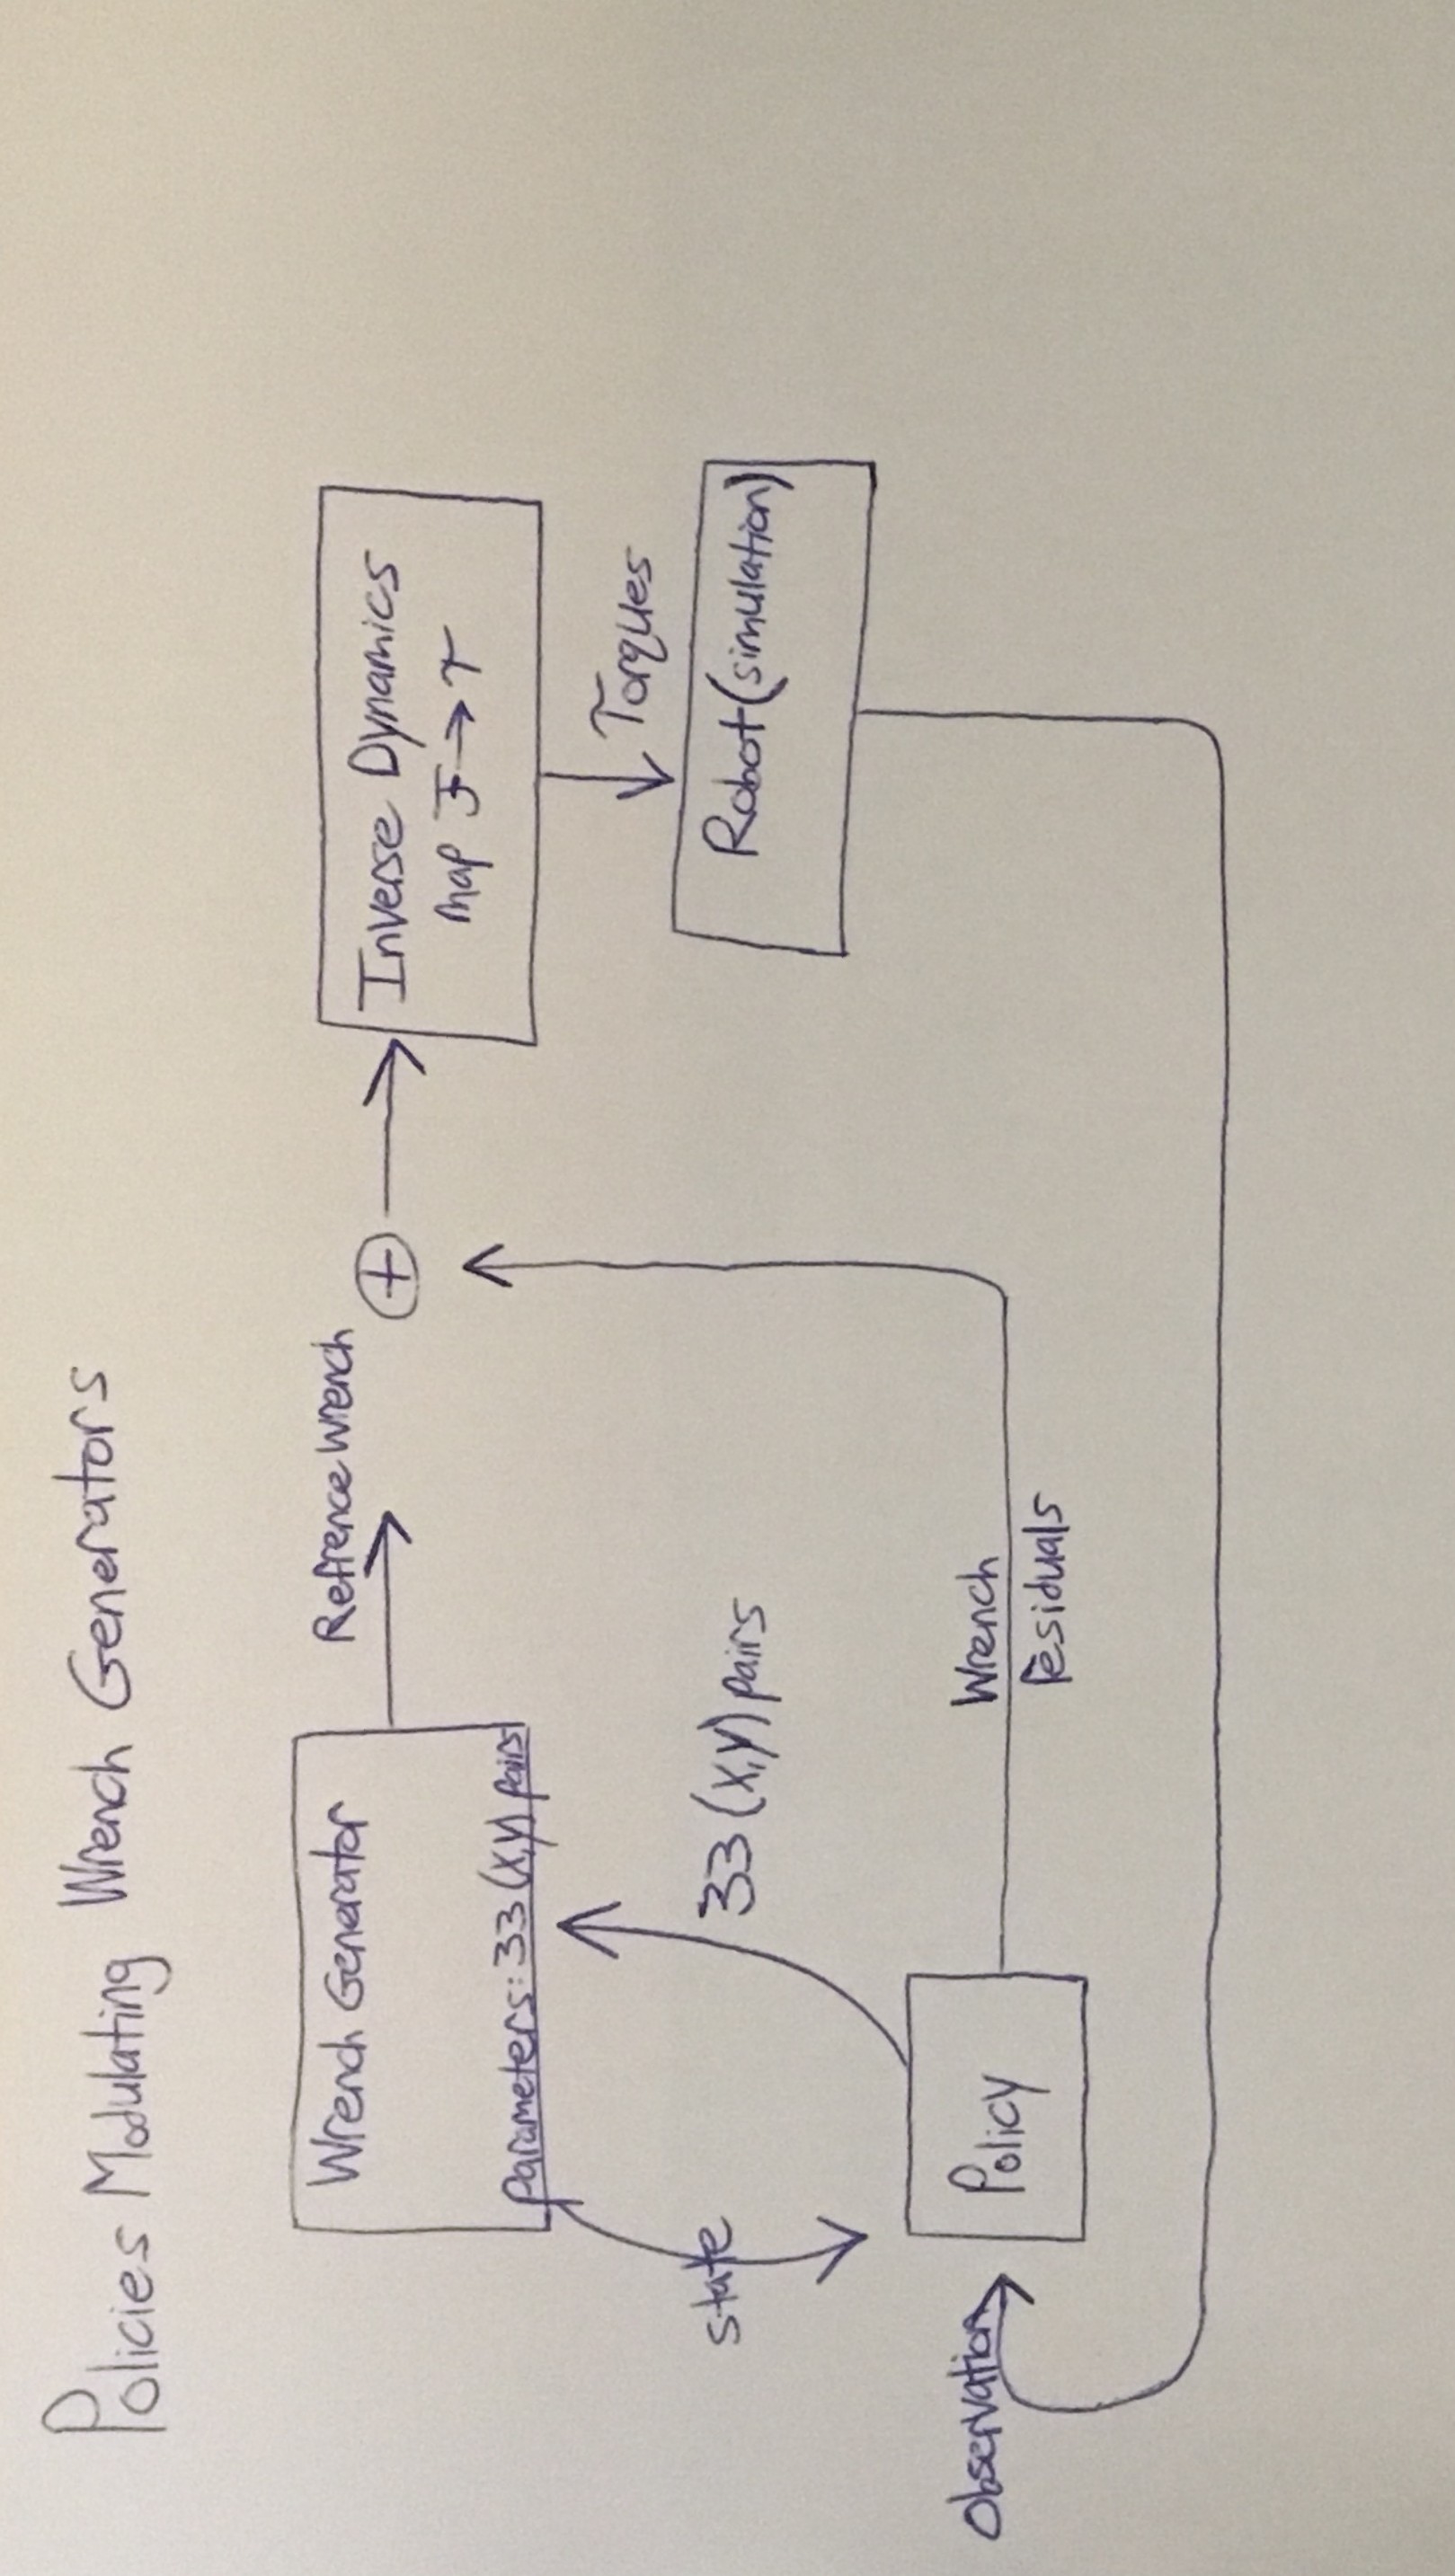 Policies Modulating Wrench Generators
Wrench Generator
parameters: 33 (X,Y) pairs
Refrence Wrench
+
Inverse Dynamics
map F → τ
Torques
Robot (simulation)
state
33 (X,Y) pairs
Observation
Policy
Wrench
residuals